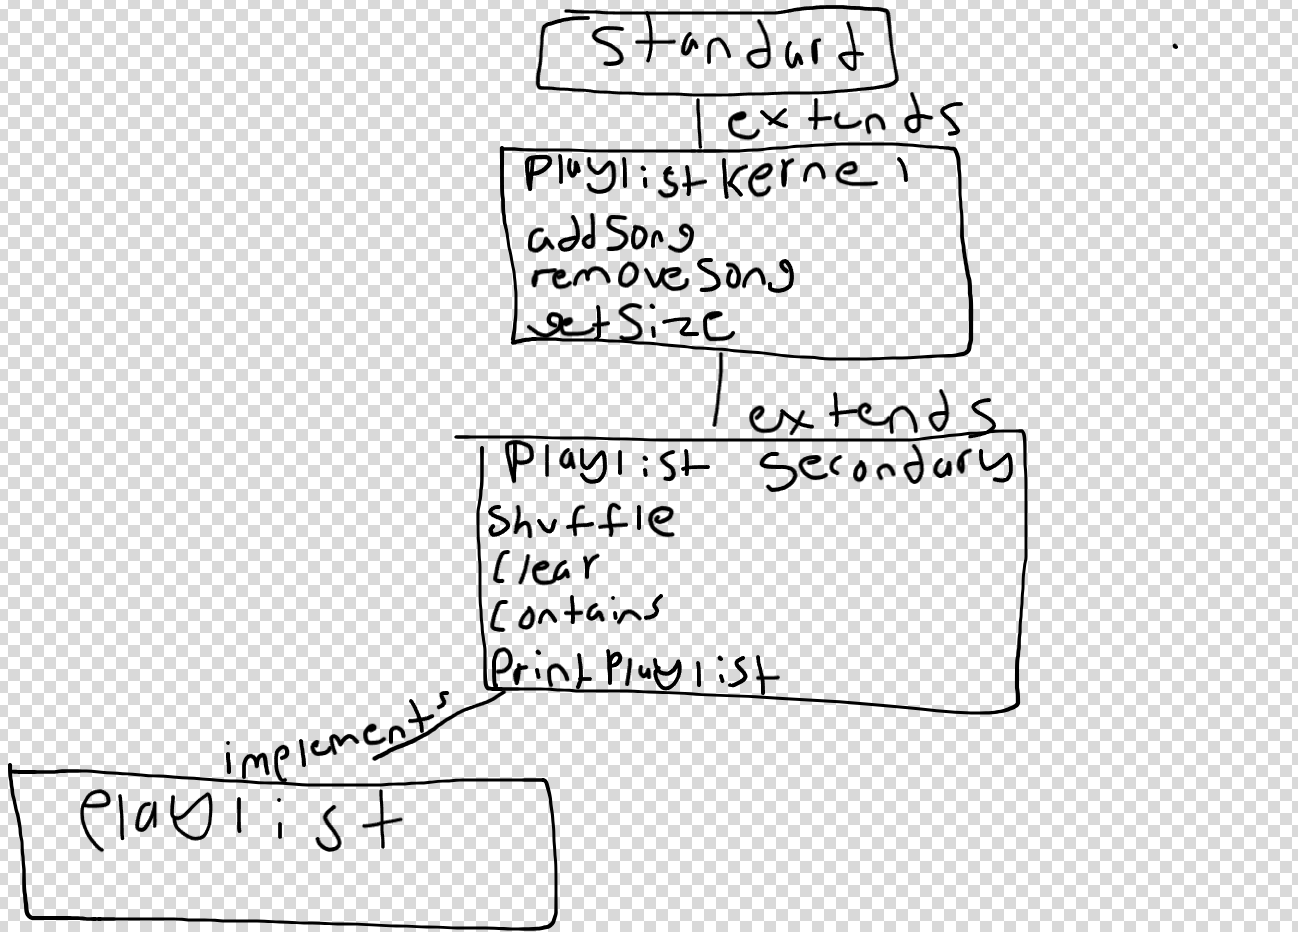 Standard
extends
Playlist Kernel
addSong
removeSong
getSize
extends
Playlist Secondary
Shuffle
Clear
Contains
PrintPlaylist
implements
Playlist